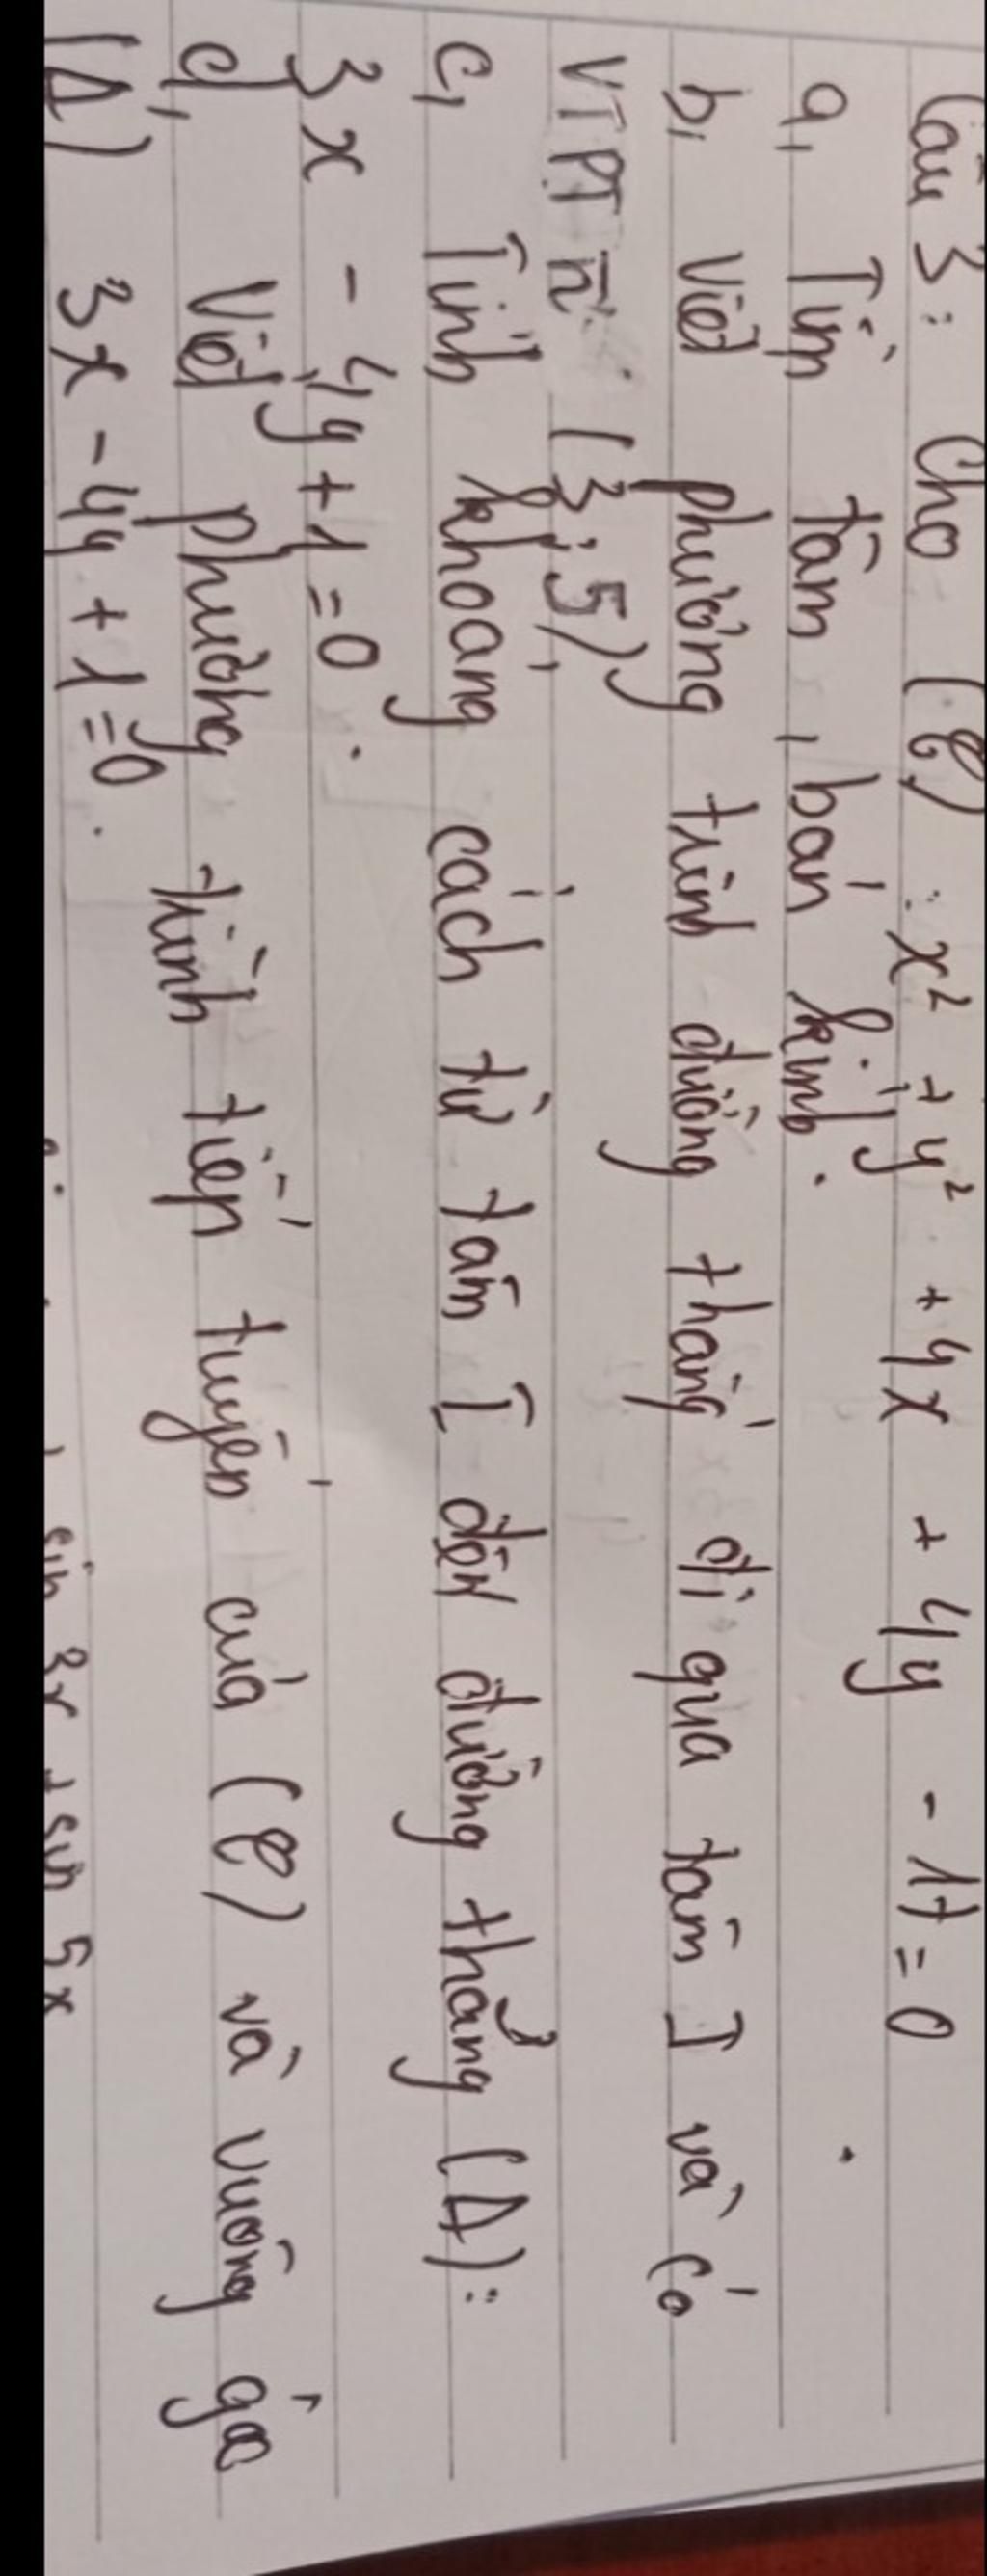 Câu 3: Cho (C) : x² + y² + 4x + 4y - 17 = 0
a, Tìm tâm, bán kính.
b, Viết phương trình đường thẳng đi qua tâm I và có
VTPT n (3; 5),
c, Tính khoảng cách từ tâm I đến đường thẳng (Δ):
3x - 4y + 1 = 0.
d, Viết phương trình tiếp tuyến của (C) và vuông góc
(Δ) 3x - 4y + 1 = 0.
sin 3x + sin 5x